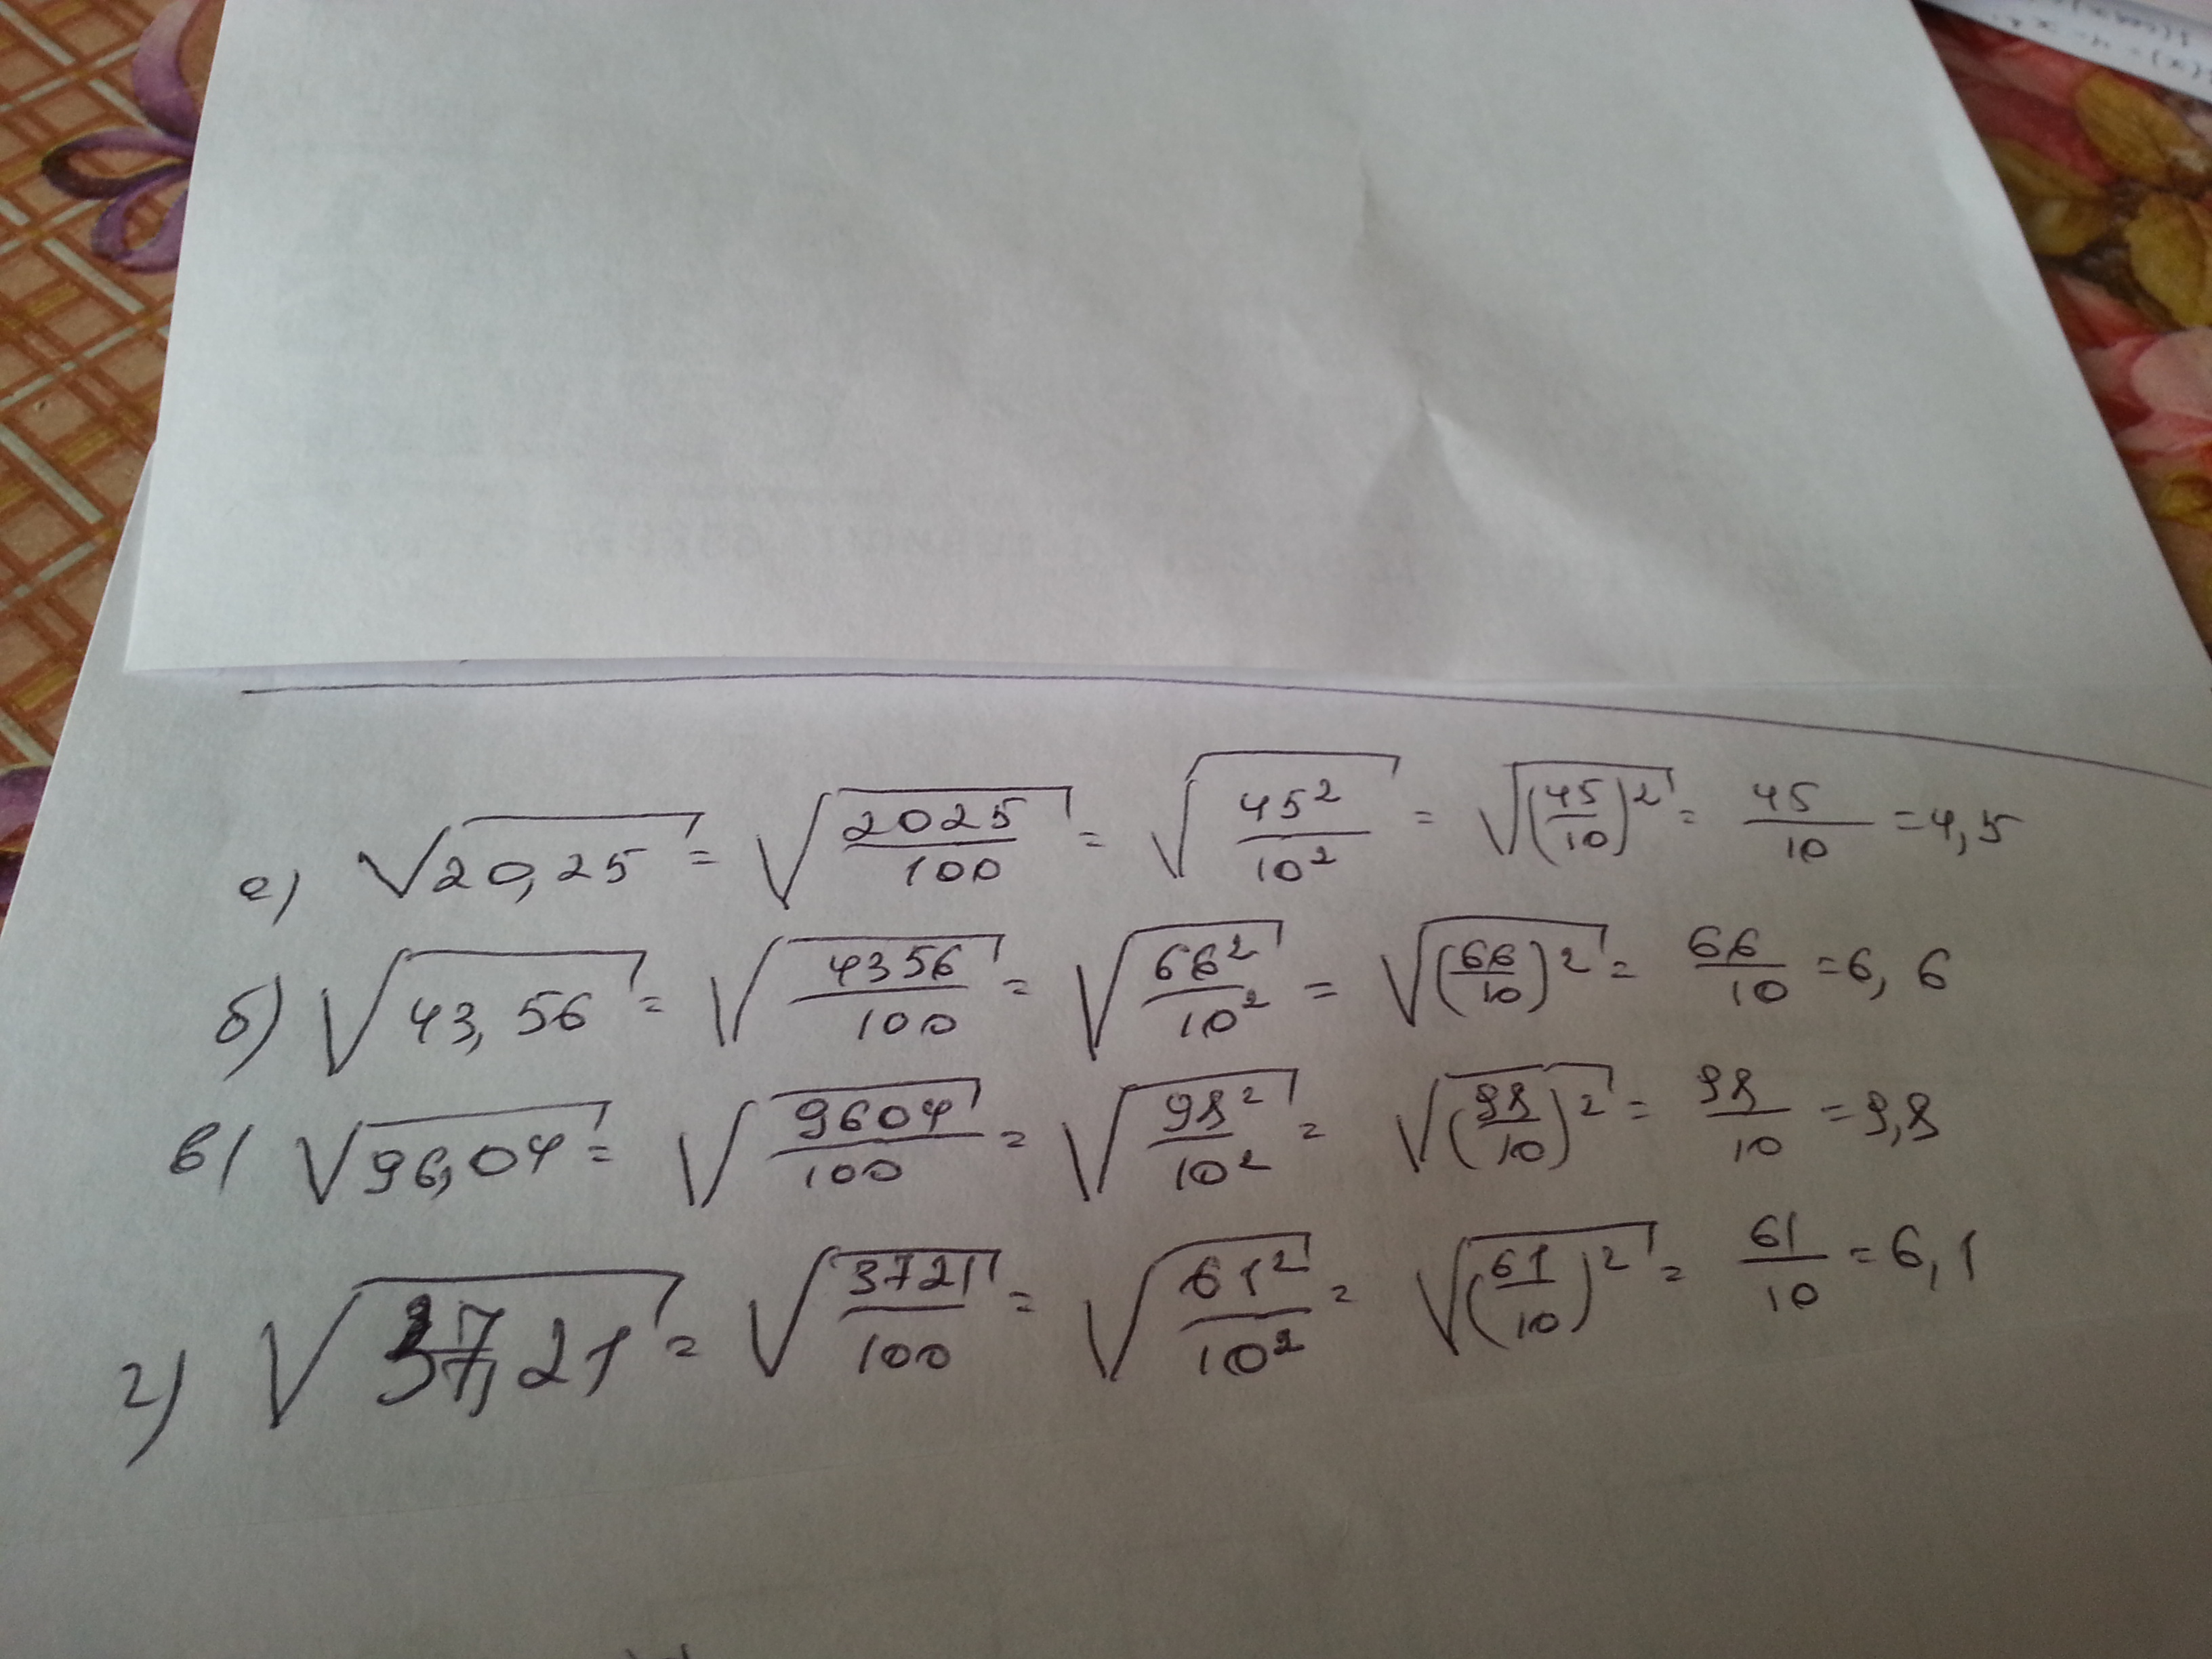 а) √20,25 = √(2025/100) = √(45²/10²) = √((45/10)²) = 45/10 = 4,5
б) √43,56 = √(4356/100) = √(66²/10²) = √((66/10)²) = 66/10 = 6,6
в) √96,04 = √(9604/100) = √(98²/10²) = √((98/10)²) = 98/10 = 9,8
г) √37,21 = √(3721/100) = √(61²/10²) = √((61/10)²) = 61/10 = 6,1